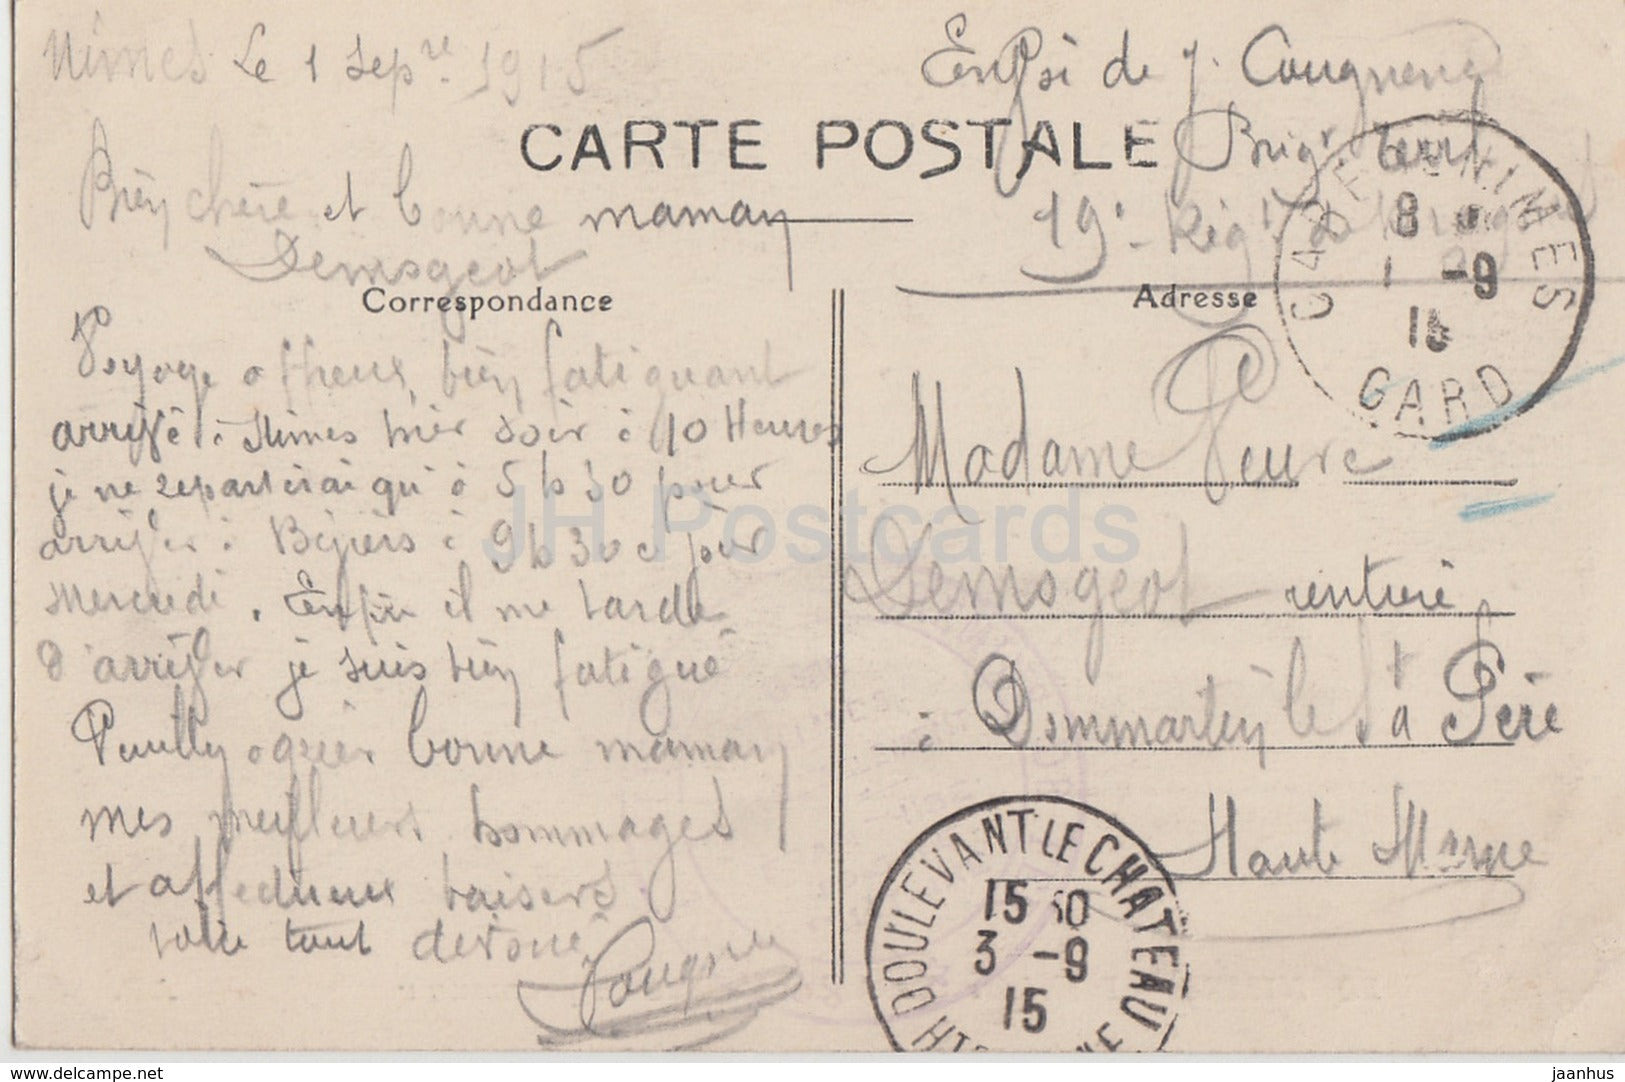 Nimes Le 1 Sepre 1915
Bien chère et bonne maman
Demogeot
Voyage affreux, bien fatiguant
arrivé à Nimes hier soir à 10 Heures
je ne repartirai qu'à 5 h 30 pour
arriver à Béziers à 9 h 30 ce jour
Mercredi. Enfin il me tarde
d'arriver je suis bien fatigué
Veuillez agréer bonne maman
mes meilleurs hommages
et affectueux baisers
votre tout dévoué
CARTE POSTALE
Correspondance
Adresse
Expi de J. Cougneng
Brigr terrl
19e Régt
Madame Veuve
Demogeot rentière
à Dommartin le St Père
Haute Marne
GARE DE NIMES
8
1 -9
15
GARD
DOULEVANT LE CHATEAU
15 50
3 -9
15
Hte MARNE
JH Postcards
delcampe.net
jaanhus